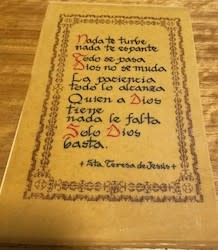 Nada te turbe
nada te espante
Todo se pasa
Dios no se muda
La paciencia
todo lo alcanza
Quien a Dios
tiene
nada le falta
Solo Dios
basta.
+ Sta. Teresa de Jesús +